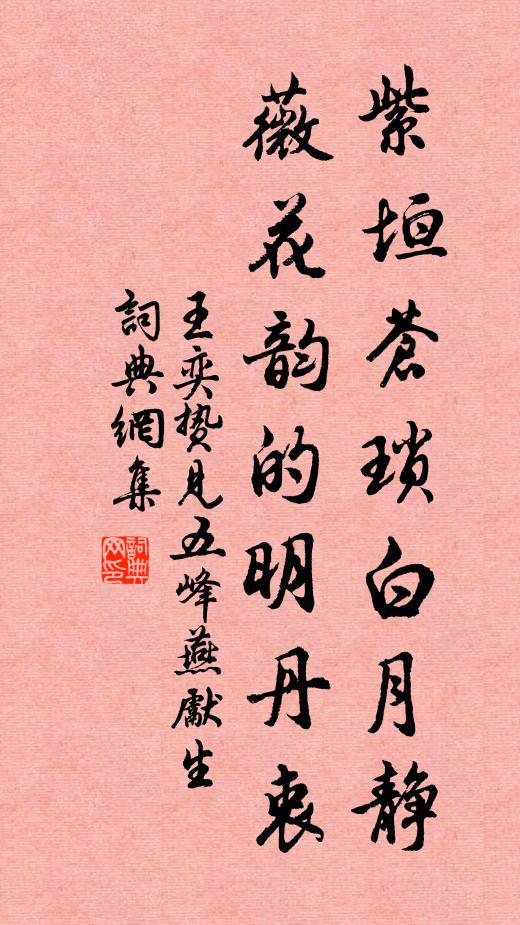 紫垣蒼瑣白月静
薇花韵的明丹衷
王奕贄見五峰燕獻生
詞典網集
詞典网印